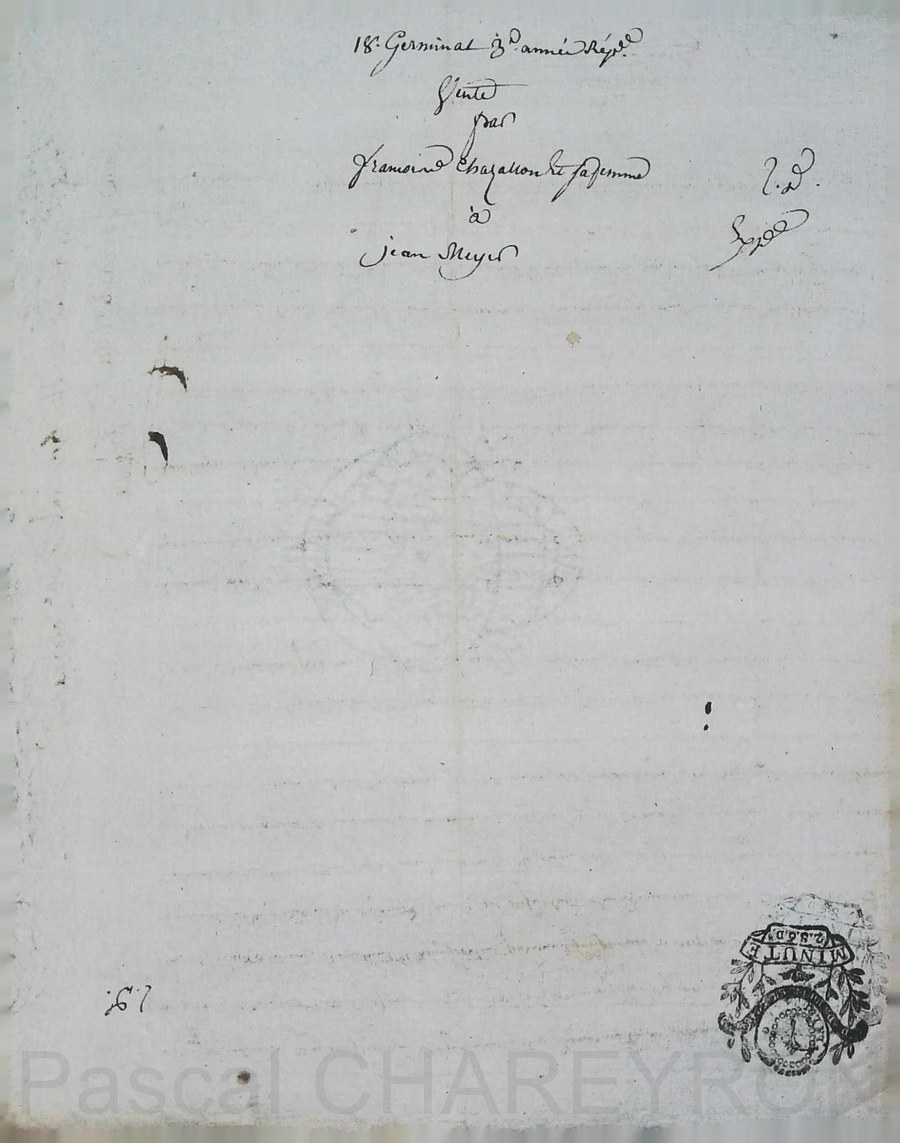 18. Germinal 3e. année Répe.
Vente
par
françois Chazallon et sa femme
à
jean Meyer
Expée
MINUTE
2.S.6.D
Pascal CHAREYRON